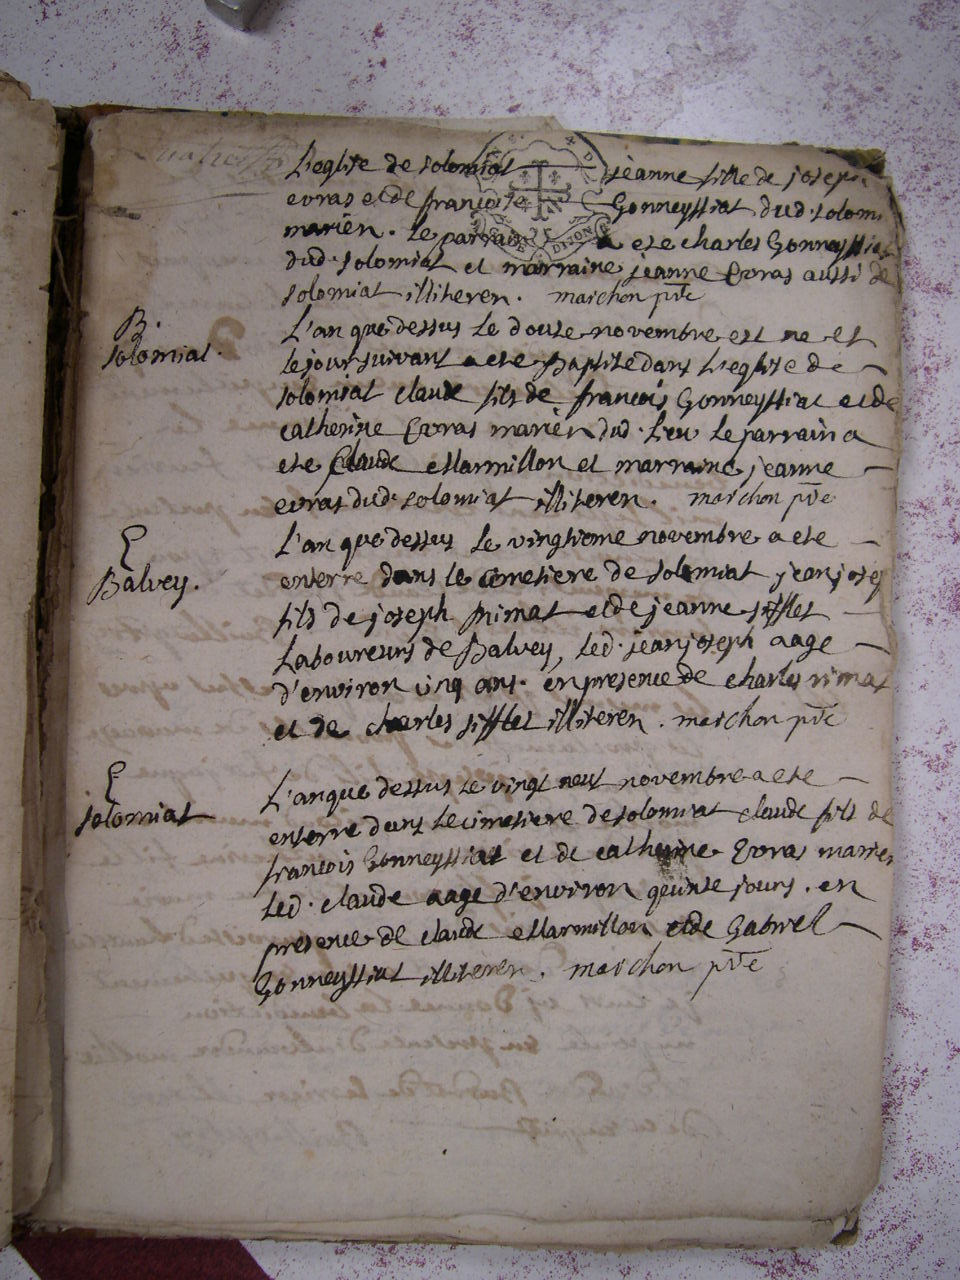 L'eglise de solomiat jeanne fille de joseph
evras et de françoise Gonneyssiat dud. solomi
mariēn. le parrain a ete charles Gonneyssiat
dud. solomiat et marraine jeanne Evras aussi de
solomiat illiteren. marchon ptre
B.
solomiat.
L'an que dessus le douse novembre est ne et
le jour suivant a ete Baptise dans l'eglise de
solomiat claude fils de françois Gonneyssiat et de
catherine Evras mariēn dud. lieu le parrain a
ete Claude Marmillon et marraine jeanne
evras dud. solomiat illiteren. marchon ptre
E
Balvey.
L'an que dessus le vingtieme novembre a ete
enterre dans le cimetiere de solomiat jean josep
fils de joseph primat et de jeanne sifflet
Laboureurs de Balvey, led. jean joseph aage
d'environ cinq ans. en presence de charles rimat
et de charles sifflet illiteren. marchon ptre
E
solomiat
L'an que dessus le vingt neuf novembre a ete
enterre dans le cimetiere de solomiat claude fils de
françois Gonneyssiat et de catherine Evras marien
led. claude aage d'environ quinse jours. en
presence de claude Marmillon et de Gabriel
Gonneyssiat illiteren. marchon ptre
DIJON